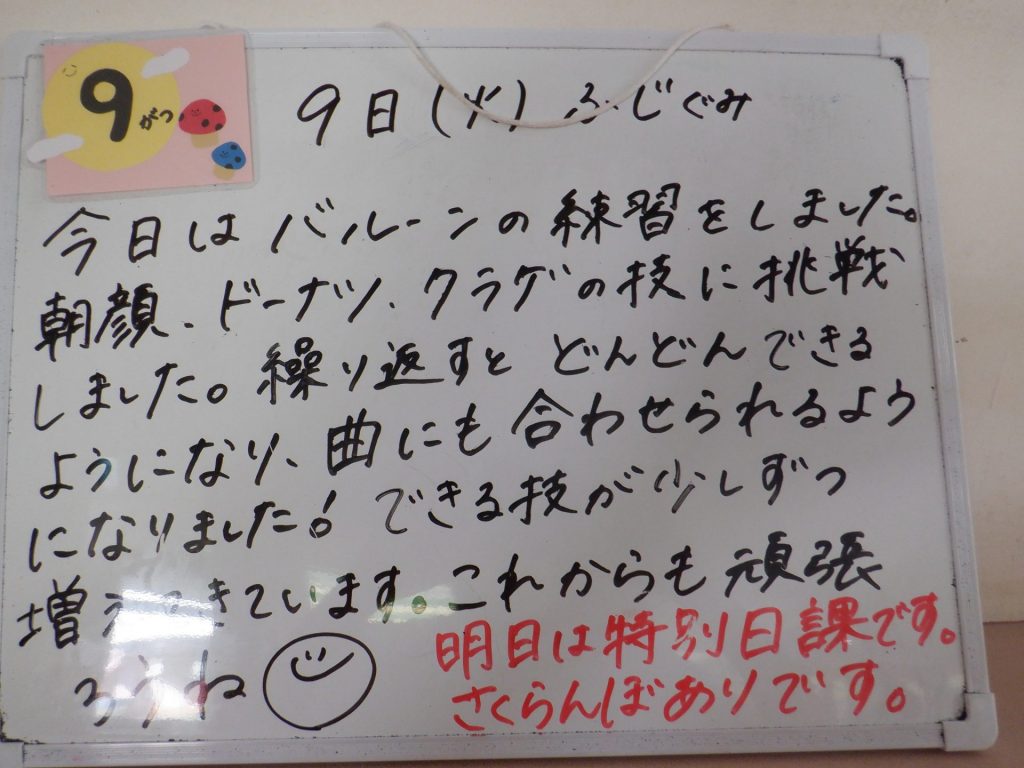 9がつ
9日(火)ふじぐみ
今日はバルーンの練習をしました。
朝顔、ドーナツ、クラゲの技に挑戦
しました。繰り返すとどんどんできる
ようになり、曲にも合わせられるよう
になりました!できる技が少しずつ
増えてきています。これからも頑張
ろうね
明日は特別日課です。
さくらんぼありです。